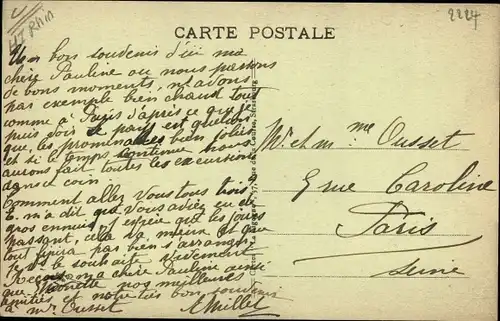 HT Rhin
2224
CARTE POSTALE
Un bon souvenir d'ici ma
chère Pauline ou nous passons
de bons moments, n'avons
par exemple bien chaud tout
comme à Paris d'après ce que je
puis voir le pays est quelcon
que, les promenades bien jolies
et si le temps continue nous
aurons fait toutes les excursions
du coin.
Comment allez vous tous trois ?
E. m'a dit que vous aviez eu de
gros ennuis j'espère que les jours
passant, cela va mieux et que
tout finira par bien s'arranger
Je vs le souhaite vivement
Reçois ma chère Pauline ainsi
que nos meilleures
amitiés et notre bon souvenir
à Mr Ousset
A Millet
Mr et Mme Ousset
9 rue Caroline
Paris
Seine